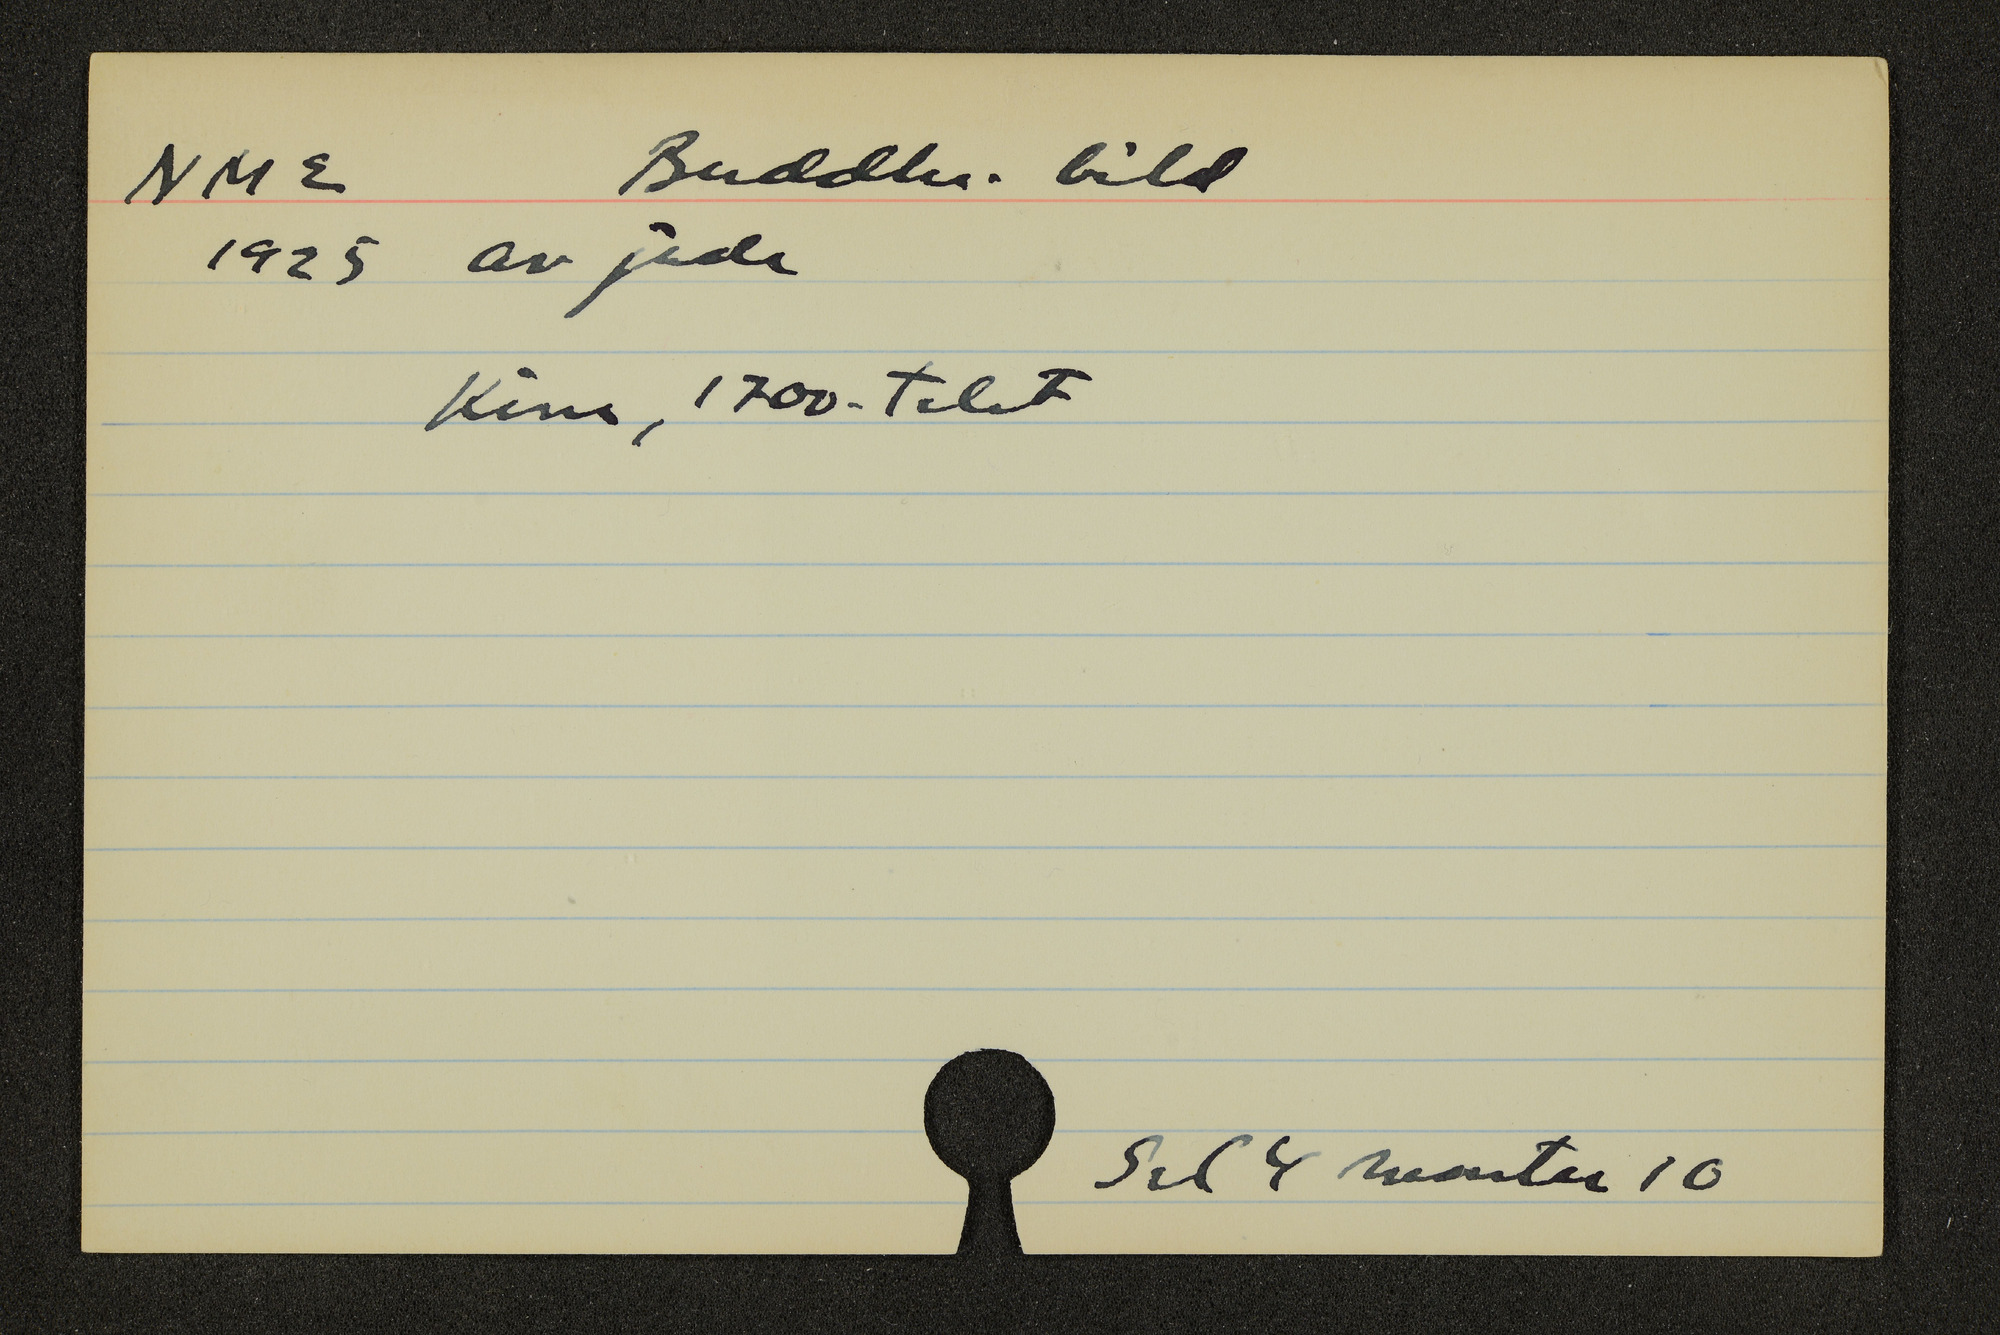 NME Buddha-bild
1925 av jade
Kina, 1700-talet
Sal 4 monter 10